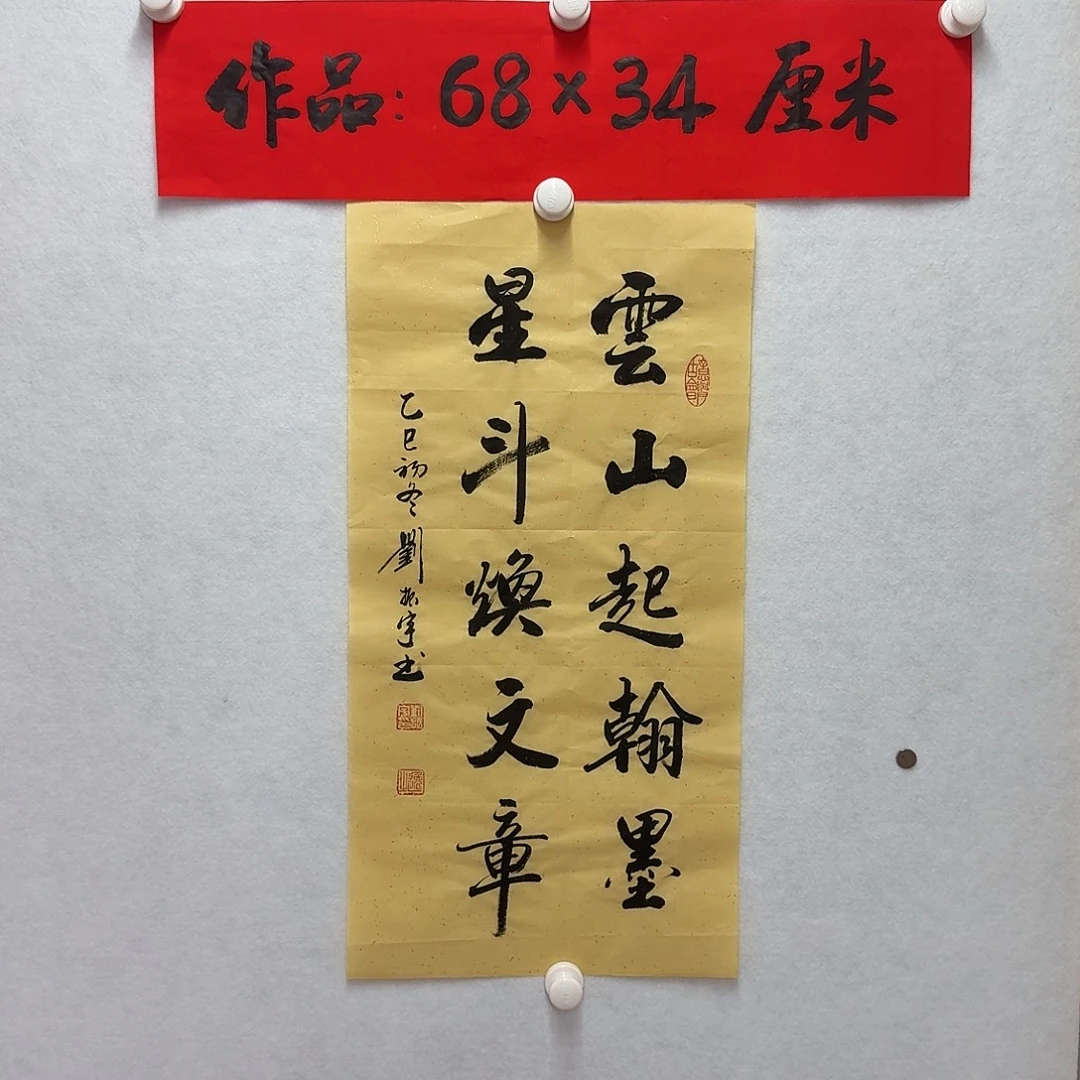 作品：68×34 厘米
雲山起翰墨
星斗煥文章
乙巳初冬劉振宇书